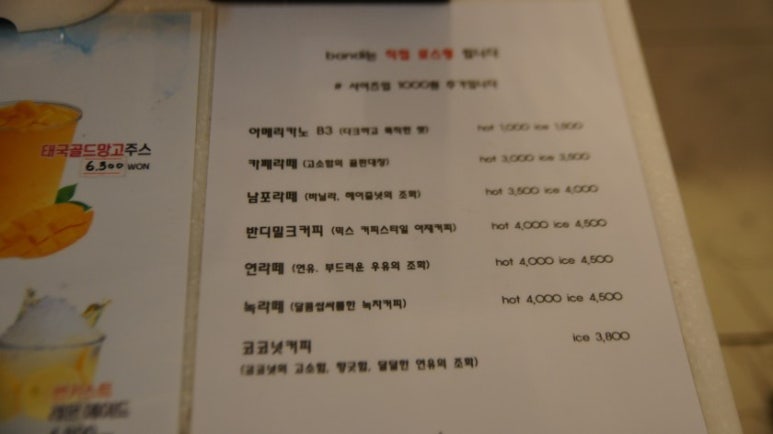 태국골드망고주스
6.300 WON
레몬에이드
직접 로스팅 합니다
# 사이즈업 1000원 추가입니다
아메리카노 B3 (다크하고 묵직한 맛) hot 1,000 ice 1,800
카페라떼 (고소함의 끝판대장) hot 3,000 ice 3,500
남포라떼 (바닐라, 헤이즐넛의 조화) hot 3,500 ice 4,000
반디밀크커피 (믹스 커피스타일 아재커피) hot 4,000 ice 4,500
연라떼 (연유, 부드러운 우유의 조화) hot 4,000 ice 4,500
녹라떼 (달콤쌉싸름한 녹차커피) hot 4,000 ice 4,500
코코넛커피 ice 3,800
(코코넛의 고소함, 향긋함, 달달한 연유의 조화)